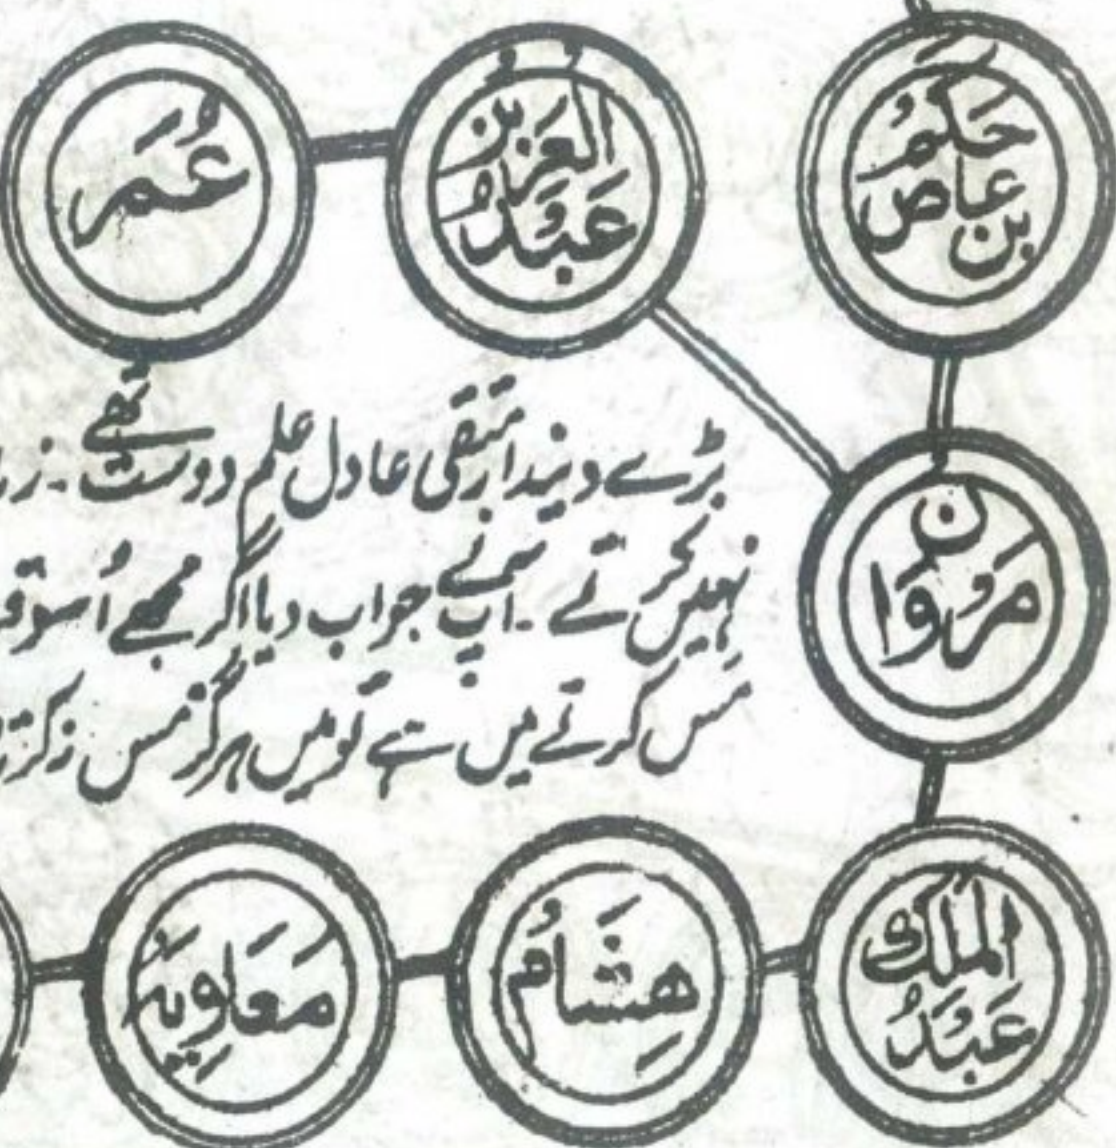 حکم بن عاص
عبد العزیز بن
عمر
بڑے دیندار متقی عادل علم دوست تھے۔
نہیں کرتے۔ آپ نے جواب دیا اگر مجھے
مَس کرتے ہیں تو میں ہرگز مس نہ
مروان
عبد الملک
ہشام
معاویہ